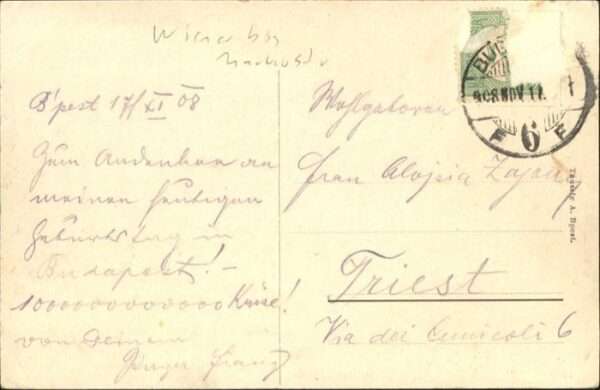 Wiener
B'pest 17/XI 08
Zum Andenken an
meinen heutigen
Geburtstag in
Budapest! –
10000000000000 Küsse!
von Deinem
Franz
Wohlgeboren
Frau Aloisia
Triest
Via dei 6
908 NOV 17
6
F F
Taussig A. Bpest.